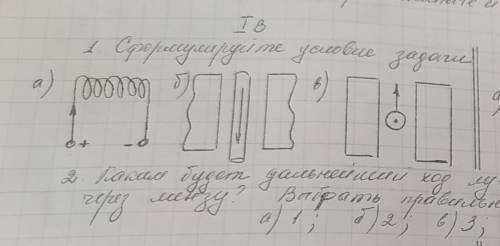 I В
1 Сформулируйте условие задачи
а) б) в)
+ -
2 Каким будет дальнейший ход
через линзу? Выбрать
а) 1; б) 2; в) 3;